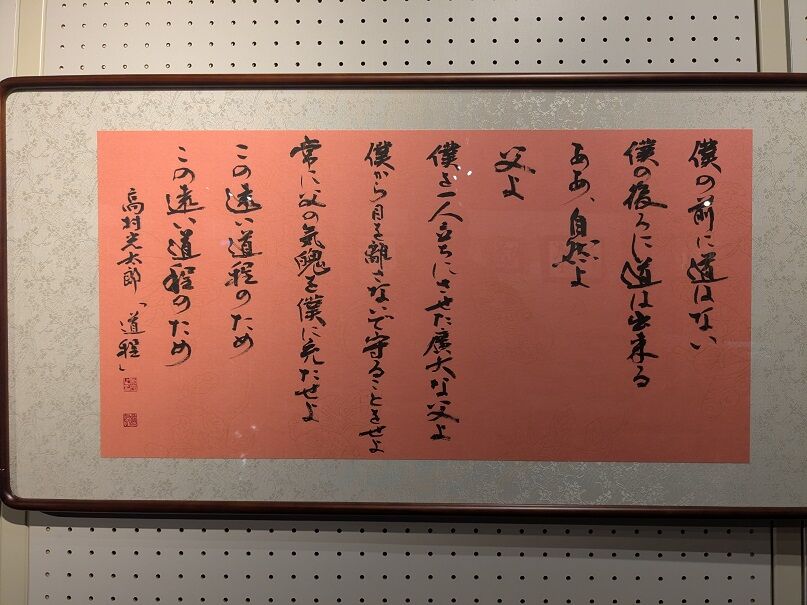 僕の前に道はない
僕の後ろに道は出来る
ああ、自然よ
父よ
僕を一人立ちにさせた廣大な父よ
僕から目を離さないで守ることをせよ
常に父の気魄を僕に充たせよ
この遠い道程のため
この遠い道程のため
高村光太郎「道程」